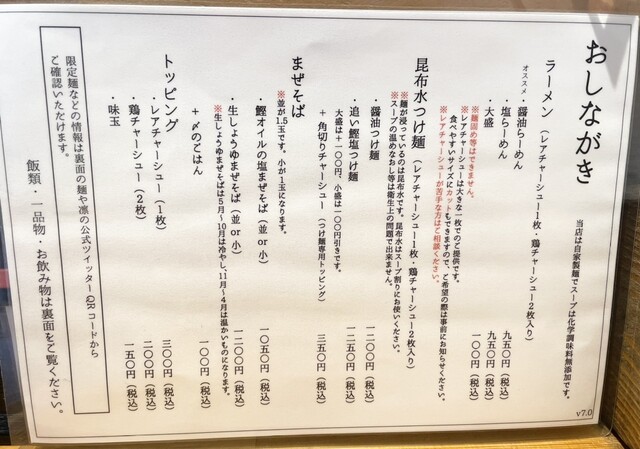 おしながき
当店は自家製麺でスープは化学調味料無添加です。
ラーメン（レアチャーシュー1枚・鶏チャーシュー2枚入り）
オススメ・醤油らーめん 九五〇円（税込）
・塩らーめん 九五〇円（税込）
・大盛 一〇〇円（税込）
※麺固め等はできません。
※レアチャーシューは大きな一枚でのご提供です。
食べやすいサイズにカットもできますので、ご希望の際は事前にお知らせください。
※レアチャーシューが苦手な方はご相談ください。
昆布水つけ麺（レアチャーシュー1枚・鶏チャーシュー2枚入り）
※麺が浸っているのは昆布水です。昆布水はスープ割りにお使いください。
※スープの温めなおし等は衛生上の問題で出来ません。
・醤油つけ麺 一二〇〇円（税込）
・追い鰹塩つけ麺 一二五〇円（税込）
大盛は＋一〇〇円、小盛は一〇〇円引きです。
＋角切りチャーシュー（つけ麺専用トッピング） 三五〇円（税込）
まぜそば
※並が1.5玉です。小が1玉になります。
・鰹オイルの塩まぜそば（並 or 小） 一〇五〇円（税込）
・生しょうゆまぜそば（並 or 小） 一二〇〇円（税込）
※生しょうゆまぜそばは5月〜10月は冷やし、11月〜4月は温かいものになります。
＋〆のごはん 一〇〇円（税込）
トッピング
・レアチャーシュー（1枚） 三〇〇円（税込）
・鶏チャーシュー（2枚） 二〇〇円（税込）
・味玉 一五〇円（税込）
限定麺などの情報は裏面の麺や凛の公式ツイッターQRコードから
ご確認いただけます。
飯類・一品物・お飲み物は裏面をご覧ください。
v7.0